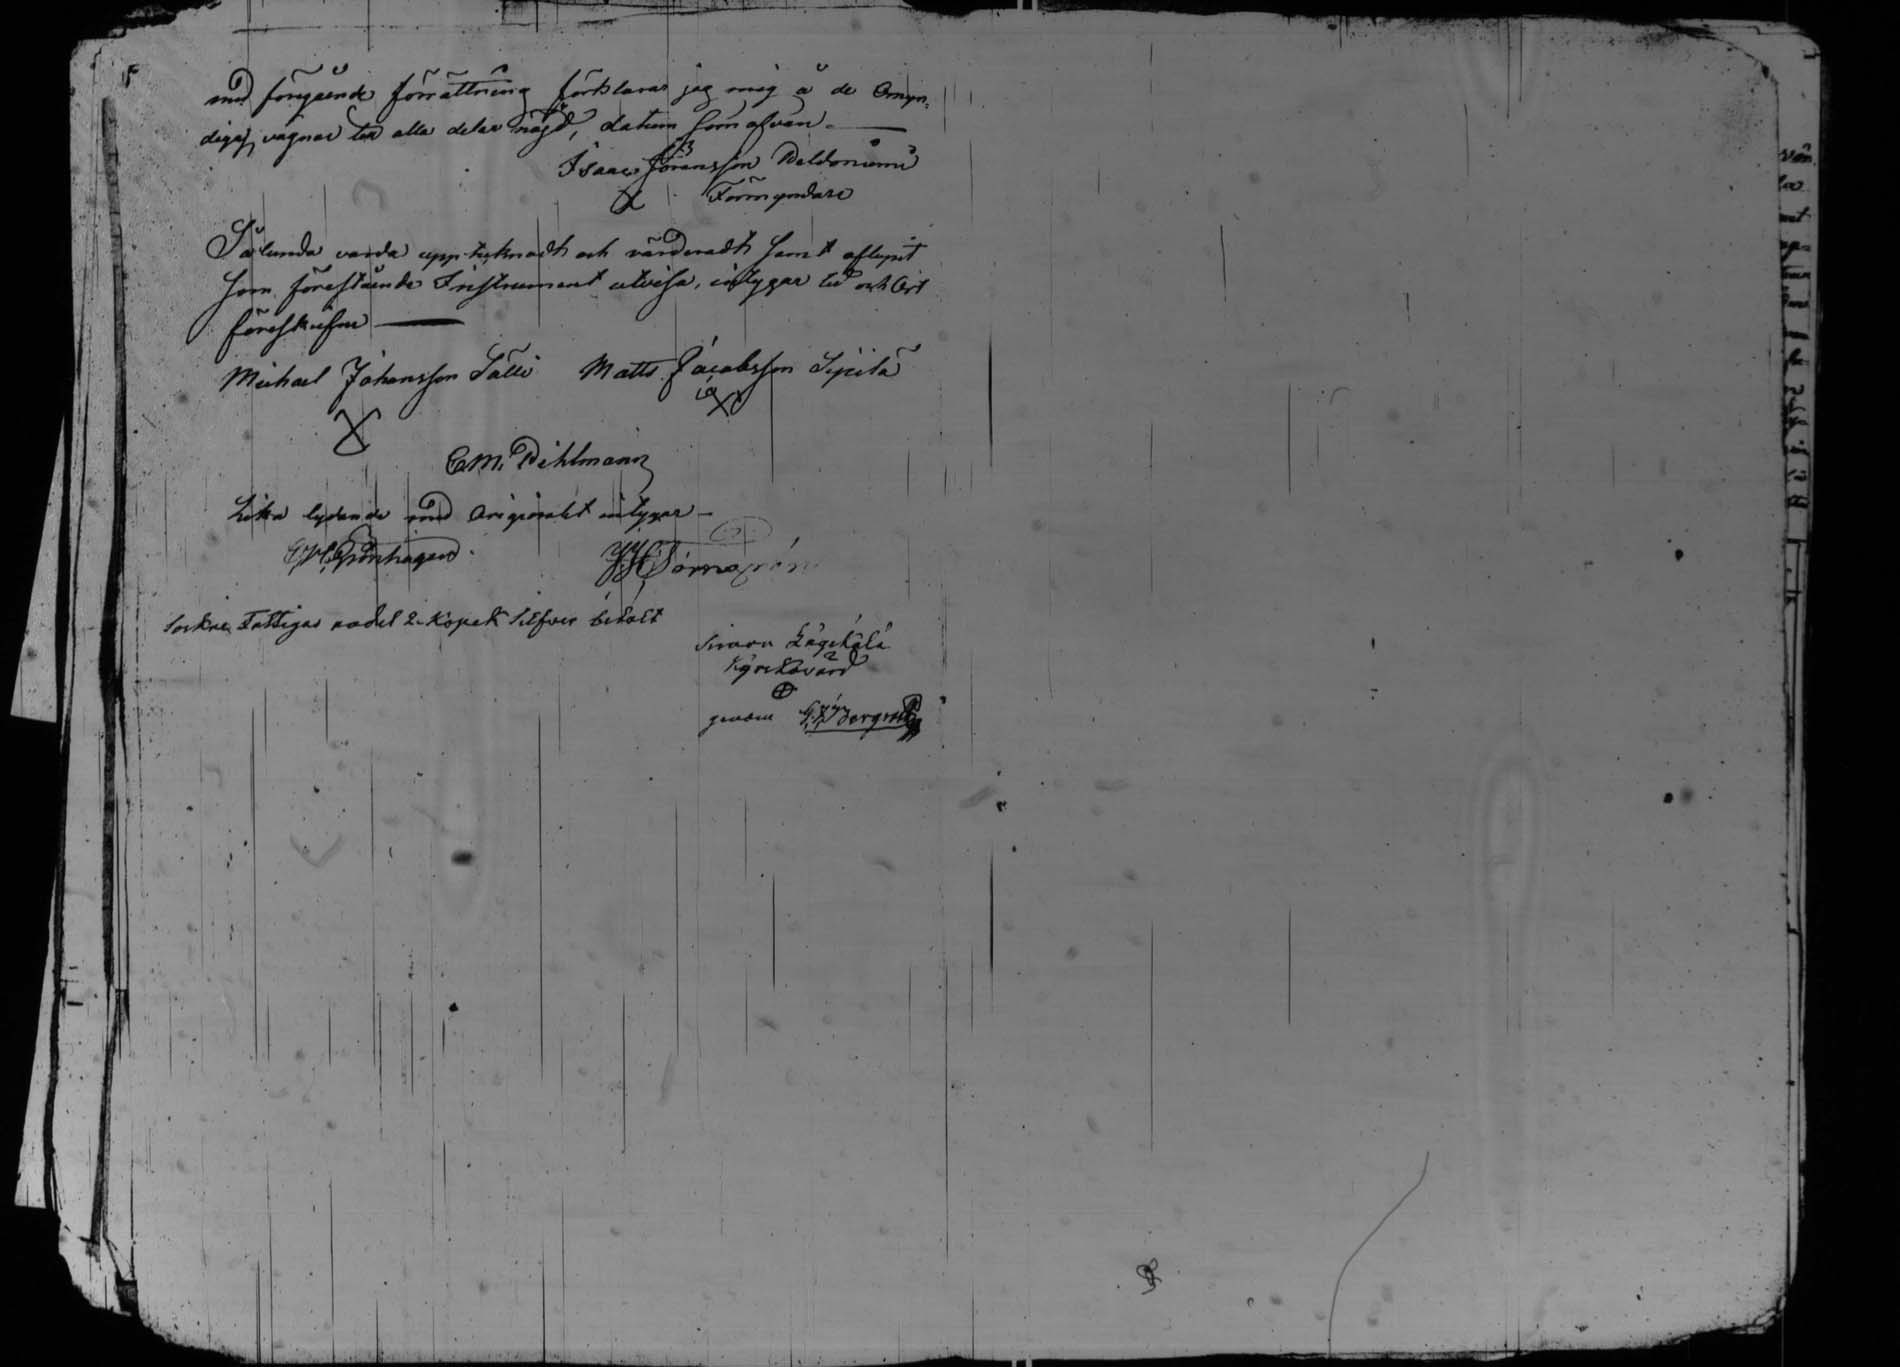 med föregående förrättning förklarar jag mig å de Omyn-
digas vägnar till alla delar nöjd, datum som ofvan
Isaac Göransson
Förmyndare
Sålunda varda upptecknadt och värderadt samt aflupit
som förestående Instrument utvisa, intygar tid och Ort
föreskrefne
Michael Johansson Sälli Matts Jacobsson Sipilä
C. M. Dihlmann
Lika lydande med Originalet intyger
Grönhagen
Sockne Fattigas andel 2 Kopek Silfver betalt
Simon
Kyrckovärd
genom